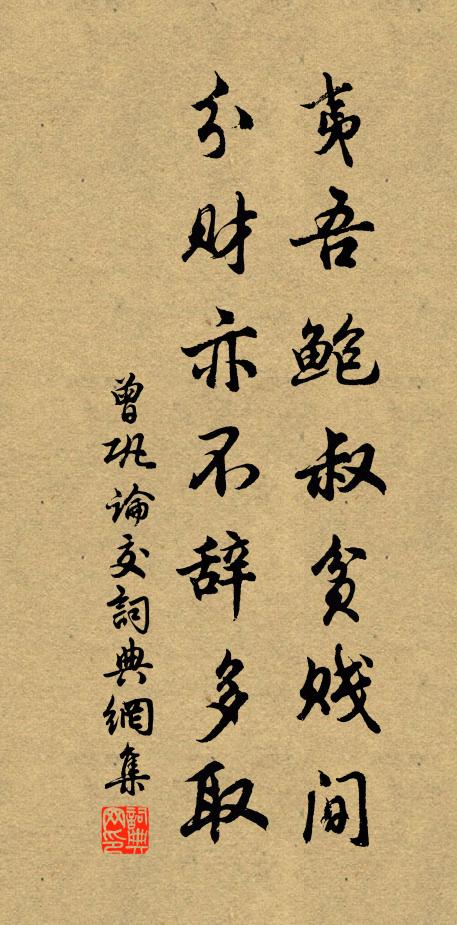 夷吾鲍叔贫贱间
分财亦不辞多取
曾巩論交詞典網集
詞典网印